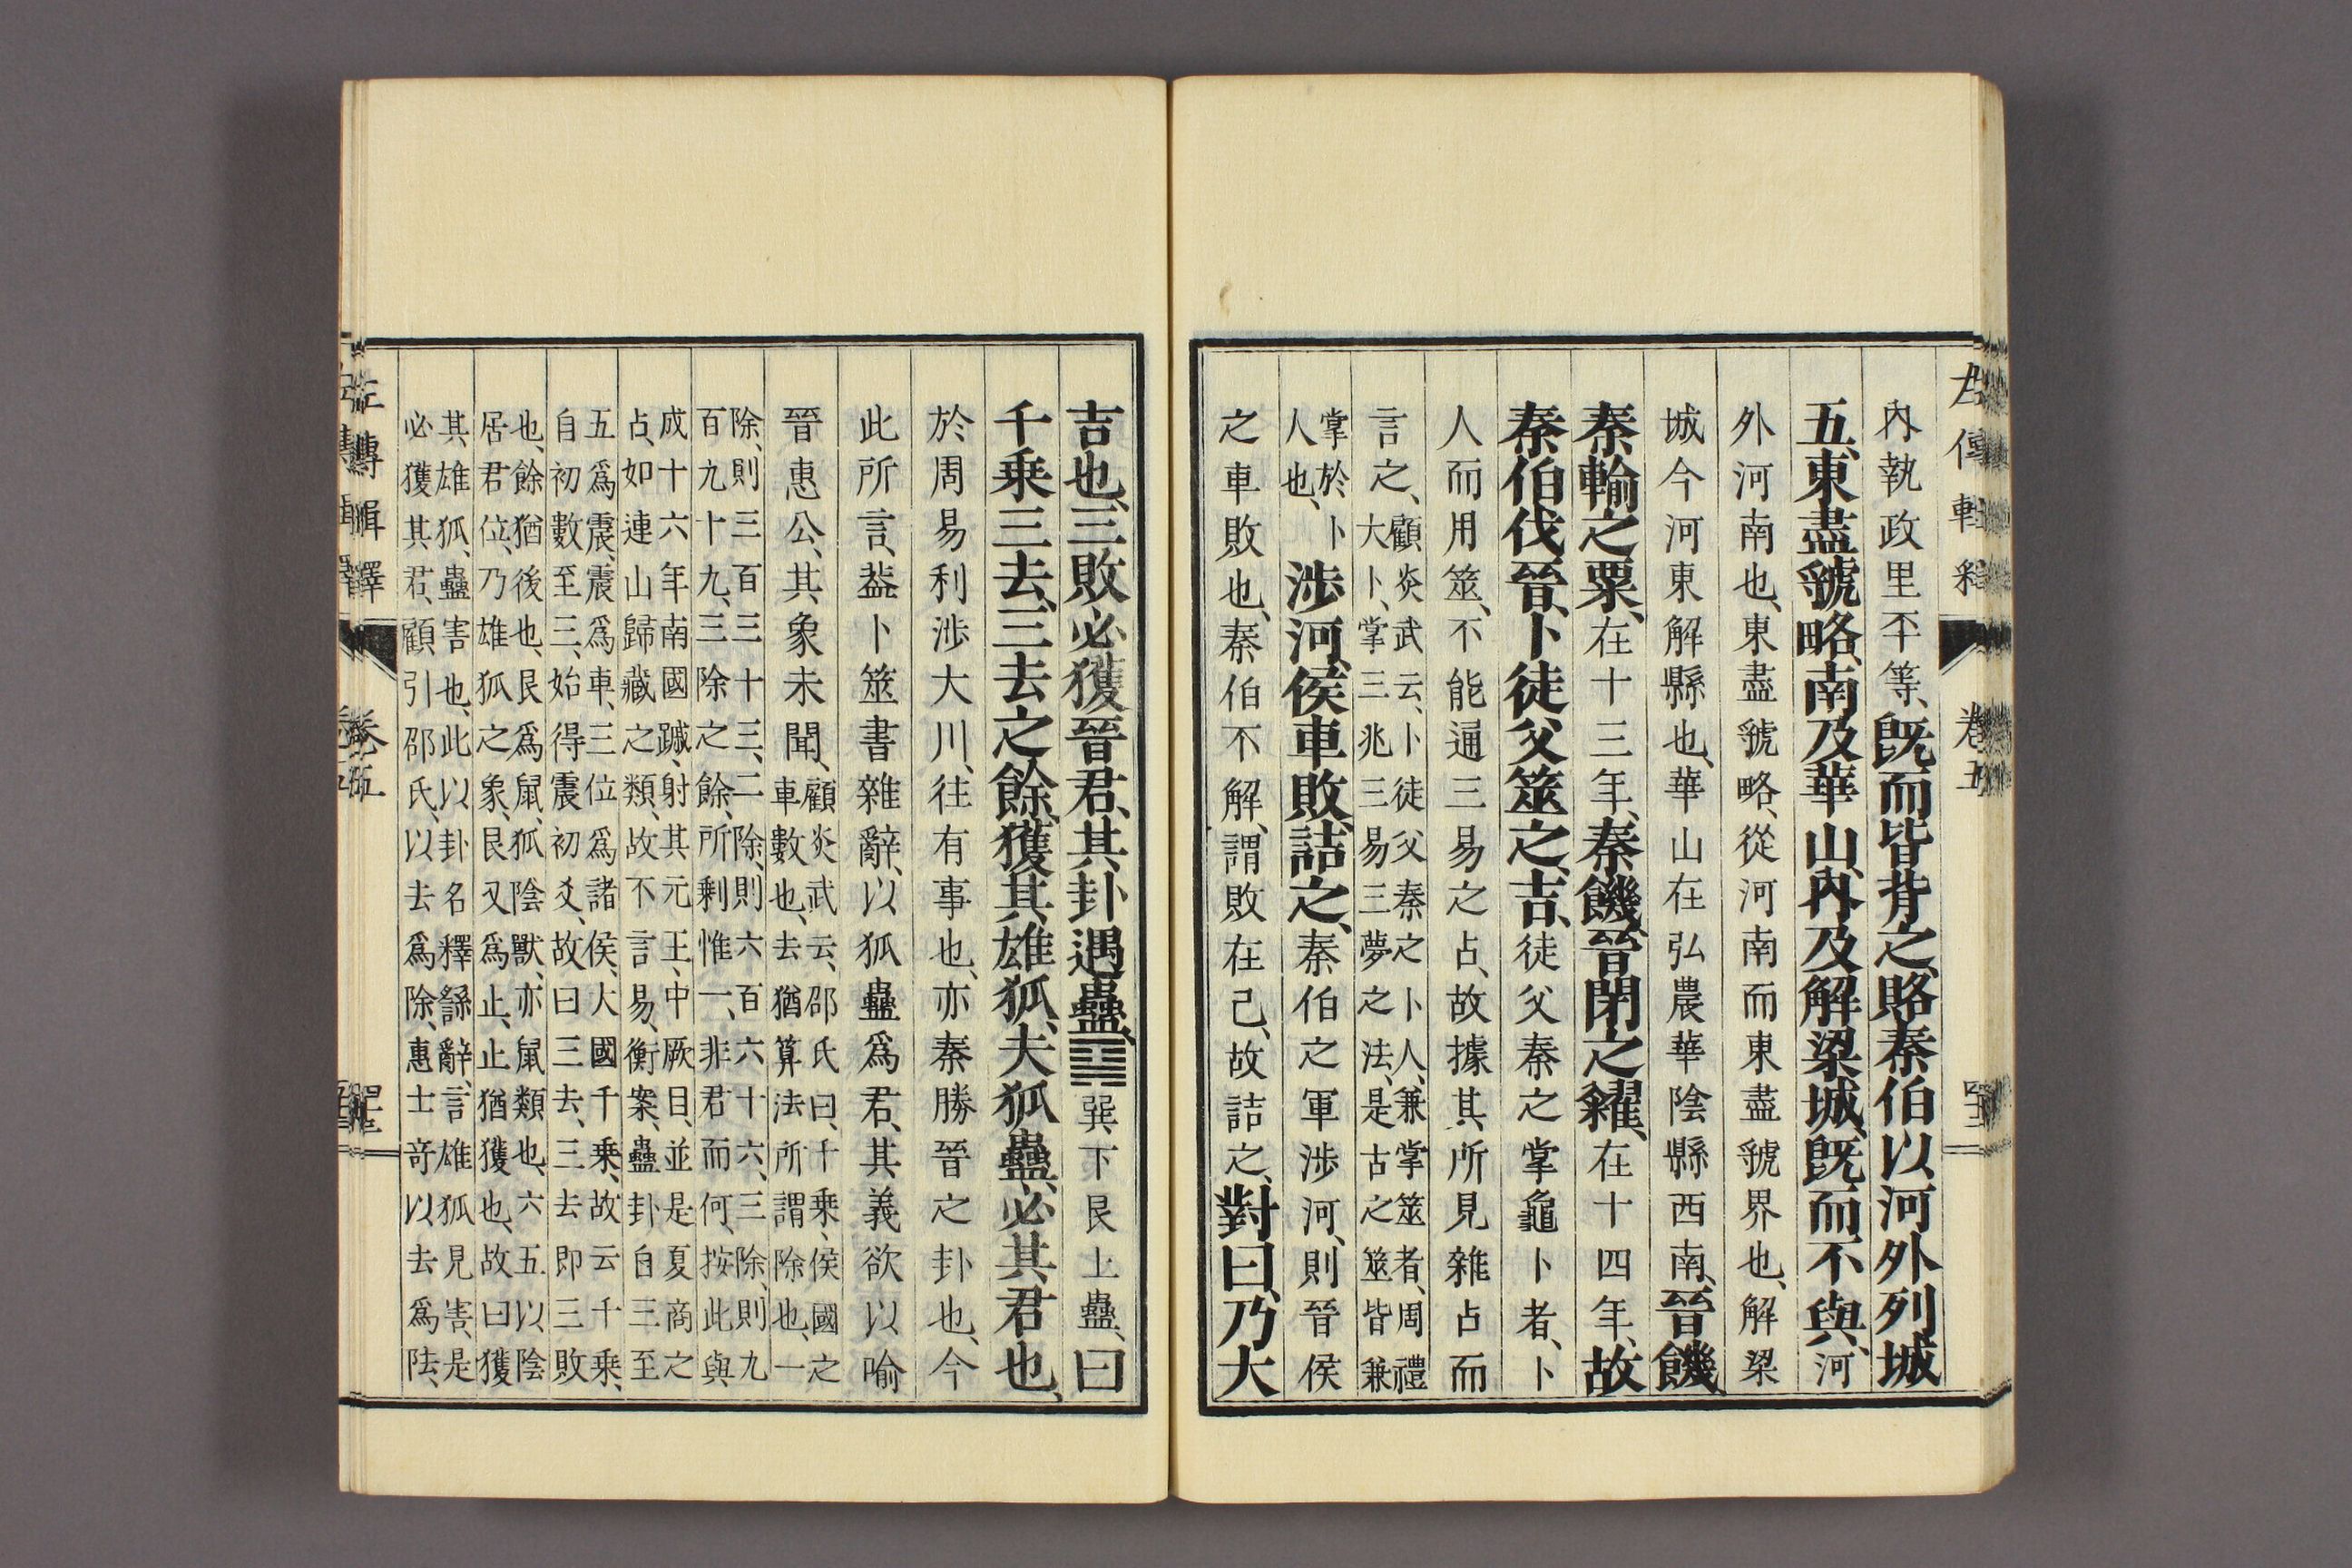 左傳輯釋 卷五
內執政里不等、旣而皆背之、賂秦伯以河外列城
五、東盡虢略、南及華山、內及解梁城、旣而不與、河
外河南也、東盡虢略、從河南而東盡虢界也、解梁
城今河東解縣也、華山在弘農華陰縣西南、晉饑、
秦輸之粟、在十三年、秦饑、晉閉之糴、在十四年、故
秦伯伐晉、卜徒父筮之、吉、徒父秦之掌龜卜者、卜
人而用筮、不能通三易之占、故據其所見雜占而
言之、顧炎武云、卜徒父秦之卜人、兼掌筮者、周禮
大卜、掌三兆三易三夢之法、是古之筮皆兼
掌於卜
人也、涉河、侯車敗、詰之、秦伯之軍涉河、則晉侯
之車敗也、秦伯不解、謂敗在己、故詰之、對曰、乃大
吉也、三敗必獲晉君、其卦遇蠱、䷑巽下艮上蠱、曰
千乘三去、三去之餘、獲其雄狐、夫狐蠱、必其君也、
於周易利涉大川、往有事也、亦秦勝晉之卦也、今
此所言、葢卜筮書雜辭、以狐蠱爲君、其義欲以喻
晉惠公、其象未聞、顧炎武云、邵氏曰、千乘、侯國之
車數也、去猶算法所謂除也、一
除、則三百三十三、二除、則六百六十六、三除、則九
百九十九、三除之餘、所剩惟一、非君而何、按此與
成十六年南國蹙、射其元王、中厥目、並是夏商之
占、如連山歸藏之類、故不言易、衡案、蠱卦自三至
五爲震、震爲車、三位爲諸侯、大國千乘、故云千乘、
自初數至三、始得震初爻、故曰三去、三去卽三敗
也、餘猶後也、艮爲鼠、狐陰獸、亦鼠類也、六五以陰
居君位、乃雄狐之象、艮又爲止、止猶獲也、故曰獲
其雄狐、蠱害也、此以卦名釋繇辭、言雄狐見害、是
必獲其君、顧引邵氏、以去爲除、惠士奇以去爲阹、
左傳輯釋 卷五